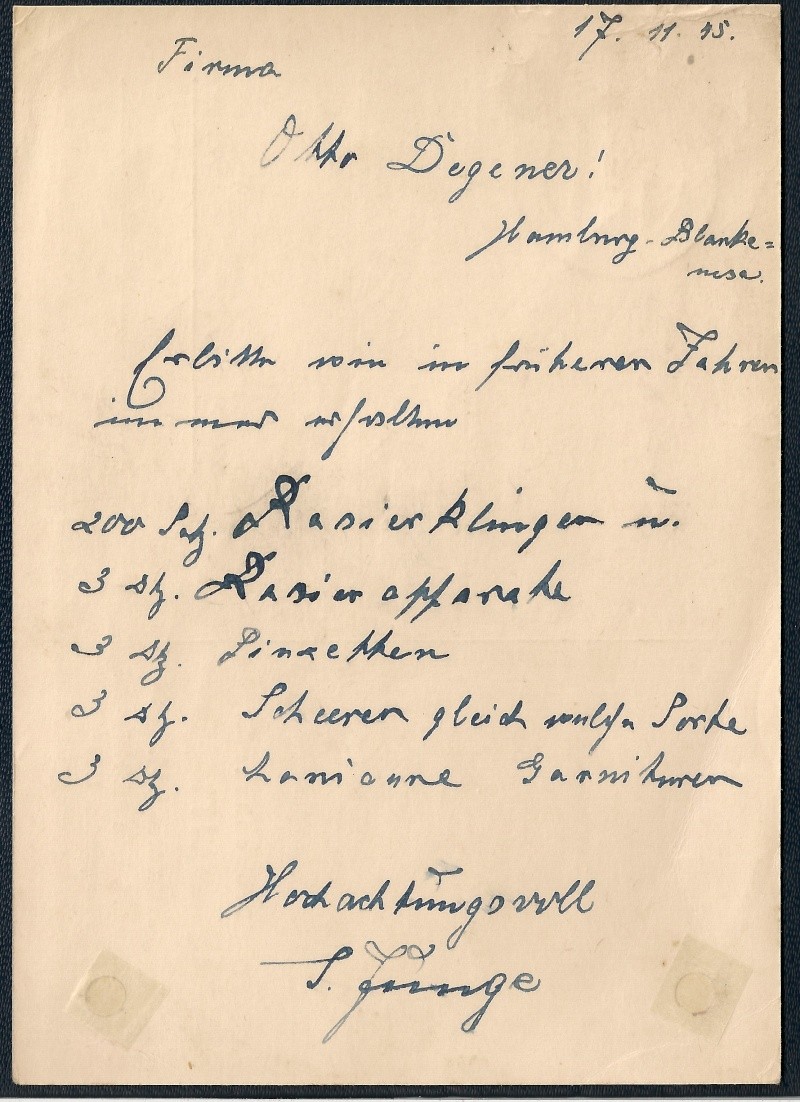 17. 11. 45.
Firma
Otto Degener!
Hamburg-Blanke=
nese.
Erbitte wie in früheren Jahren
immer erhalten
200 Stz. Rasierklingen u.
3 Stz. Rasierapparate
3 Stz. Pinzetten
3 Stz. Scheeren gleich welche Sorte
3 Stz. Garnituren
Hochachtungsvoll
S. Junge